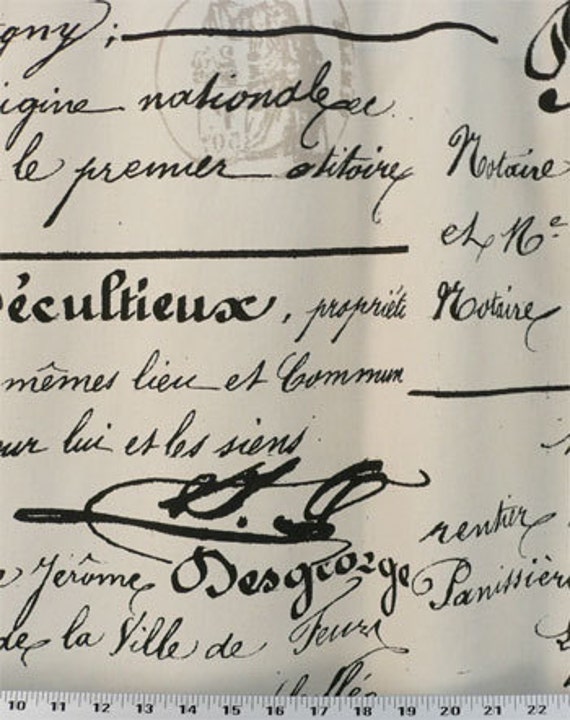 igny;
igine nationale
le premier
écultieux, propriété
mêmes lieu et Commun
ur lui et les siens
Jérôme Desgeorge
de la Ville de Feurs
Notaire
et Ne
Notaire
rentier
Panissière
10 11 12 13 14 15 16 17 18 19 20 21 22